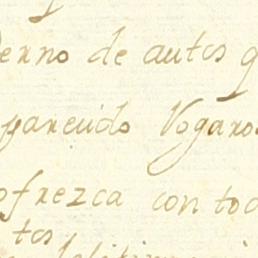 erno de autos q
parecido Vogaros
ofrezca con tod
tos